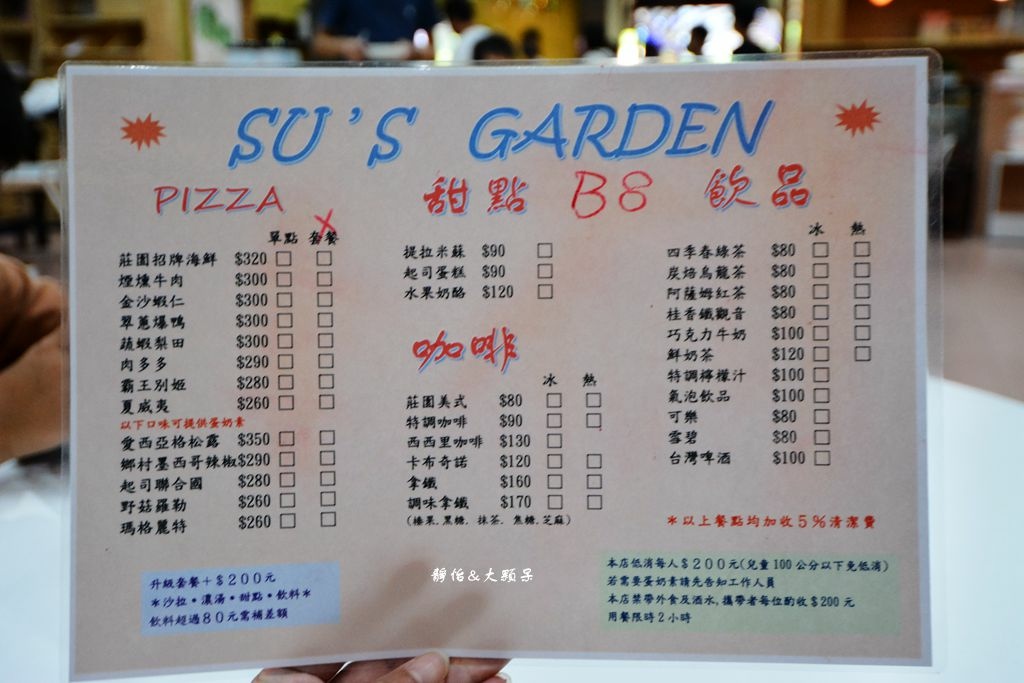 SU'S GARDEN
PIZZA
單點 套餐
莊園招牌海鮮 $320 □ □
煙燻牛肉 $300 □ □
金沙蝦仁 $300 □ □
翠蔥爆鴨 $300 □ □
蔬蝦梨田 $300 □ □
肉多多 $290 □ □
霸王別姬 $280 □ □
夏威夷 $260 □ □
以下口味可提供蛋奶素
愛西亞格松露 $350 □ □
鄉村墨西哥辣椒$290 □ □
起司聯合國 $280 □ □
野菇羅勒 $260 □ □
瑪格麗特 $260 □ □
升級套餐+$200元
*沙拉•濃湯•甜點•飲料*
飲料超過80元需補差額
甜點 B8
提拉米蘇 $90 □
起司蛋糕 $90 □
水果奶酪 $120 □
咖啡
冰 熱
莊園美式 $80 □ □
特調咖啡 $90 □ □
西西里咖啡 $130 □
卡布奇諾 $120 □ □
拿鐵 $160 □ □
調味拿鐵 $170 □ □
(榛果.黑糖. 抹茶. 焦糖.芝麻)
飲品
冰 熱
四季春綠茶 $80 □ □
炭焙烏龍茶 $80 □ □
阿薩姆紅茶 $80 □ □
桂香鐵觀音 $80 □ □
巧克力牛奶 $100 □ □
鮮奶茶 $120 □ □
特調檸檬汁 $100 □
氣泡飲品 $100 □
可樂 $80 □
雪碧 $80 □
台灣啤酒 $100 □
*以上餐點均加收5%清潔費
本店低消每人$200元(兒童100公分以下免低消)
若需要蛋奶素請先告知工作人員
本店禁帶外食及酒水,攜帶者每位酌收$200元
用餐限時2小時
靜怡&大顆呆